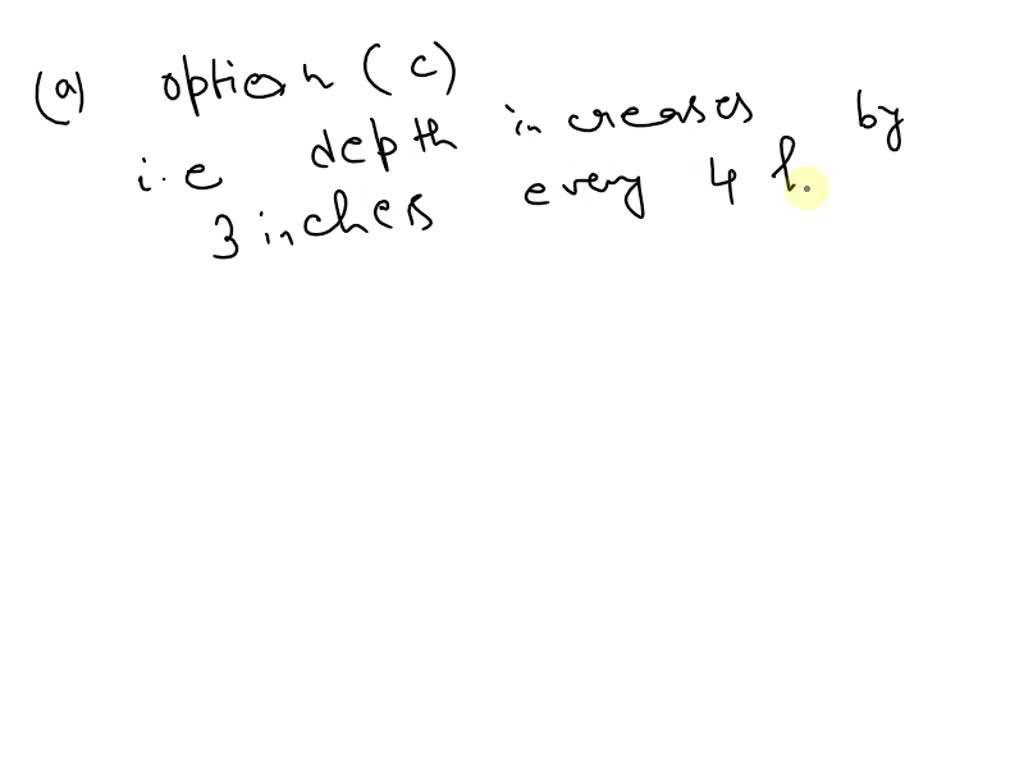 (a) option (c)
i.e depth increases by
3 inches every 4 h.